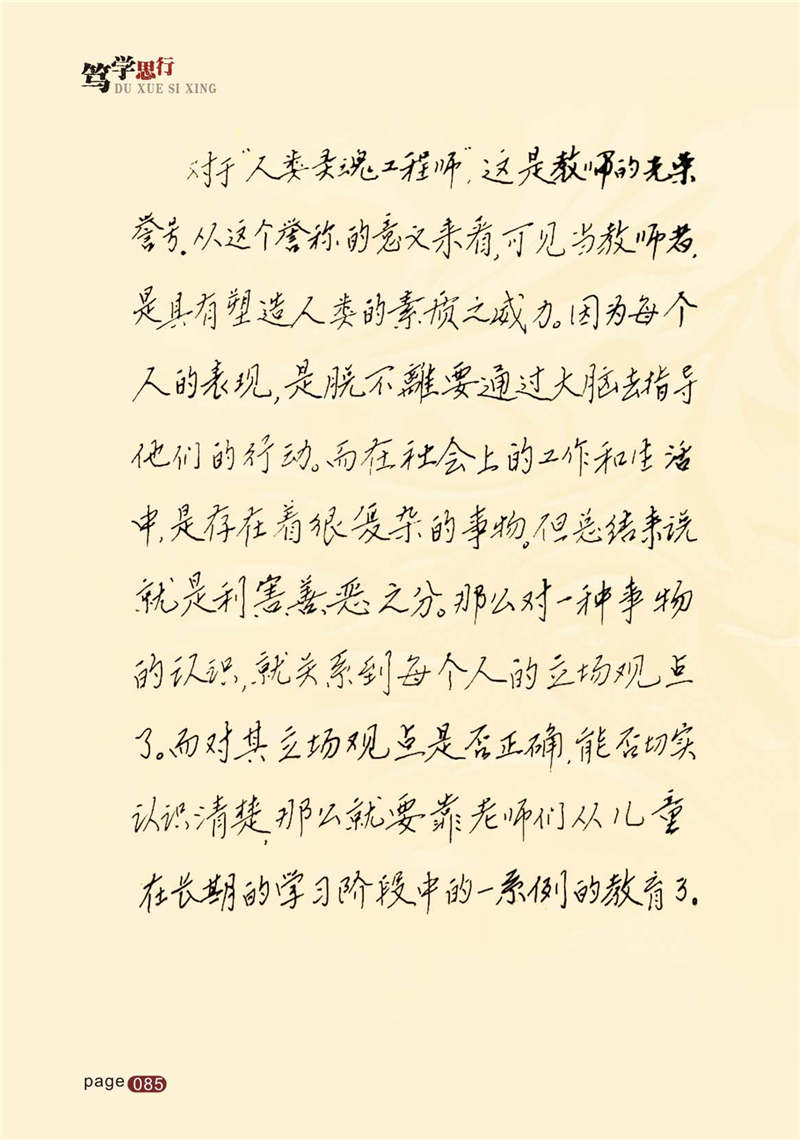 笃学思行
DU XUE SI XING
对于“人类灵魂工程师”,这是教师的光荣
誉号.从这个誉称的意义来看,可见当教师者,
是具有塑造人类的素质之威力。因为每个
人的表现,是脱不離要通过大脑去指导
他们的行动。而在社会上的工作和生活
中,是存在着很復杂的事物。但总结来说
就是利害善恶之分。那么对一种事物
的认识,就关系到每个人的立场观点
了。而对其立场观点是否正确,能否切实
认识清楚,那么就要靠老师们从儿童
在长期的学习阶段中的一系例的教育了。
page 085